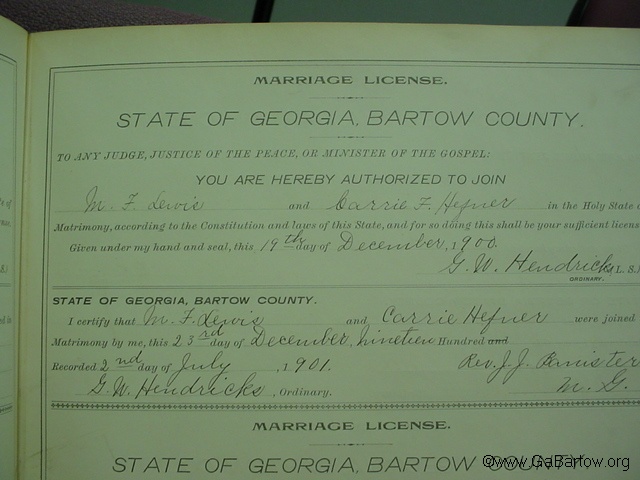 MARRIAGE LICENSE.
STATE OF GEORGIA, BARTOW COUNTY.
TO ANY JUDGE, JUSTICE OF THE PEACE, OR MINISTER OF THE GOSPEL:
YOU ARE HEREBY AUTHORIZED TO JOIN
M. F. Lewis and Carrie F. Hefner in the Holy State o
Matrimony, according to the Constitution and laws of this State, and for so doing this shall be your sufficient licens
Given under my hand and seal, this 19th day of December, 1900.
G. W. Hendricks (L. S.)
ORDINARY.
STATE OF GEORGIA, BARTOW COUNTY.
I certify that M. F. Lewis and Carrie Hefner were joined
Matrimony by me, this 23rd day of December, nineteen Hundred and
Recorded 2nd day of July, 1901. Rev. J. J.
G. W. Hendricks, Ordinary. M. G.
MARRIAGE LICENSE.
STATE OF GEORGIA, BARTOW COUNTY.
©www.GaBartow.org